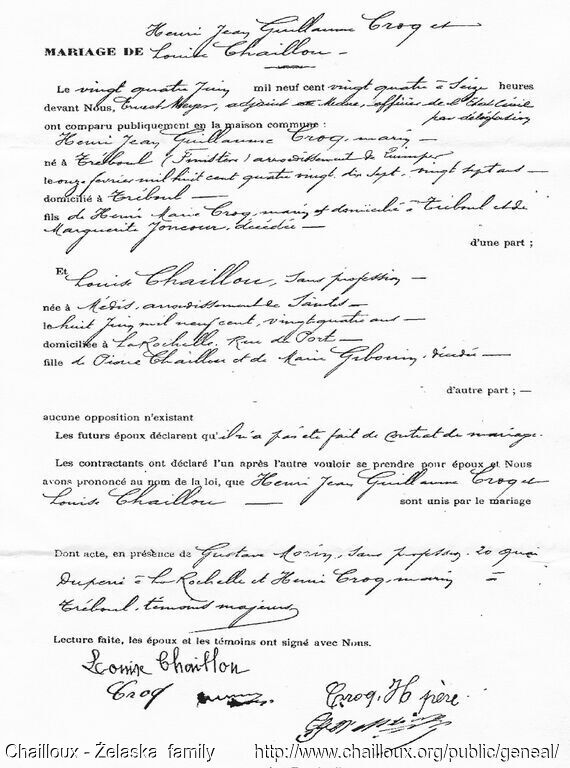 Henri Jean Guillaume Croq et
MARIAGE DE Louise Chaillou
Le vingt quatre Juin mil neuf cent vingt quatre à Seize heures
devant Nous, Ernest Meyer, adjoint au Maire, officier de l'Etat Civil
par délégation
ont comparu publiquement en la maison commune :
Henri Jean Guillaume Croq, marin
né à Tréboul (Finistère) arrondissement de Quimper
le onze février mil huit cent quatre vingt dix sept. vingt sept ans
domicilié à Tréboul
fils de Henri Marie Croq, marin et domicilié à Tréboul et de
Marguerite Joncour, décédée
d'une part ;
Et Louise Chaillou, Sans profession
née à Médis, arrondissement de Saintes
le huit Juin mil neuf cent, vingt quatre ans
domiciliée à La Rochelle. Rue du Port
fille de Pierre Chaillou et de Marie décédée
d'autre part ; —
aucune opposition n'existant
Les futurs époux déclarent qu'il n'a pas été fait de contrat de mariage.
Les contractants ont déclaré l'un après l'autre vouloir se prendre pour époux et Nous
avons prononcé au nom de la loi, que Henri Jean Guillaume Croq et
Louise Chaillou — sont unis par le mariage
Dont acte, en présence de Gustave Morin, Sans profession. 20 quai
Duperré à La Rochelle et Henri Croq, marin à
Tréboul, témoins majeurs
Lecture faite, les époux et les témoins ont signé avec Nous.
Louise Chaillou
Croq
Croq. H père
Chailloux - Żelaska family http://www.chailloux.org/public/geneal/